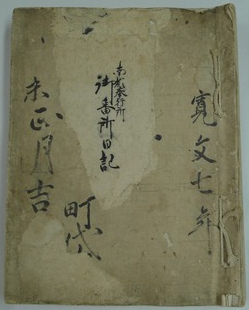 寛文七年
南都奉行所
御番所日記
未正月吉
町代